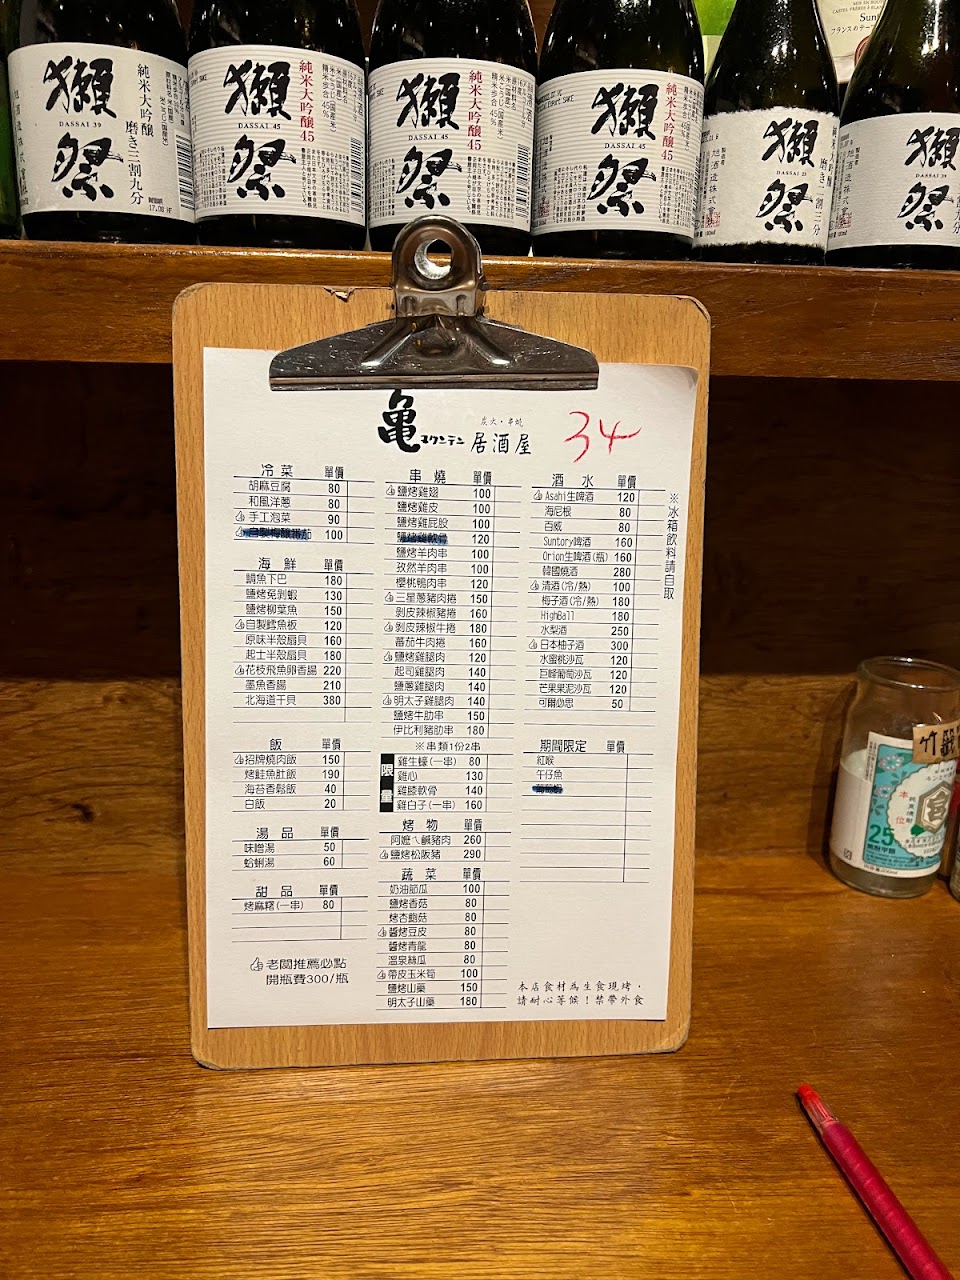 純米大吟醸
磨き三割九分
獺祭
DASSAI 39
17.08
純米大吟醸45
獺祭
DASSAI 45
精米歩合 45%
純米大吟醸45
獺祭
DASSAI 45
精米歩合 45%
純米大吟醸45
獺祭
DASSAI 45
獺祭
DASSAI 23
磨き二割三分
旭酒造株式會社
獺祭
DASSAI 39
亀
炭火・串燒
居酒屋
34
冷菜 單價
胡麻豆腐 80
和風洋蔥 80
手工泡菜 90
自製梅釀番茄 100
海鮮 單價
鯖魚下巴 180
鹽烤免剝蝦 130
鹽烤柳葉魚 150
自製鱈魚板 120
原味半殼扇貝 160
起士半殼扇貝 180
花枝飛魚卵香腸 220
墨魚香腸 210
北海道干貝 380
飯 單價
招牌燒肉飯 150
烤鮭魚肚飯 190
海苔香鬆飯 40
白飯 20
湯品 單價
味噌湯 50
蛤蜊湯 60
甜品 單價
烤麻糬(一串) 80
老闆推薦必點
開瓶費300/瓶
串燒 單價
鹽烤雞翅 100
鹽烤雞皮 100
鹽烤雞屁股 100
鹽烤雞軟骨 120
鹽烤羊肉串 100
孜然羊肉串 100
櫻桃鴨肉串 120
三星蔥豬肉捲 150
剝皮辣椒豬捲 160
剝皮辣椒牛捲 180
蕃茄牛肉捲 160
鹽烤雞腿肉 120
起司雞腿肉 140
鹽蔥雞腿肉 140
明太子雞腿肉 140
鹽烤牛肋串 150
伊比利豬肋串 180
※串類1份2串
限量
雞生蠔(一串) 80
雞心 130
雞膝軟骨 140
雞白子(一串) 160
烤物 單價
阿嬤ㄟ鹹豬肉 260
鹽烤松阪豬 290
蔬菜 單價
奶油節瓜 100
鹽烤香菇 80
烤杏鮑菇 80
醬烤豆皮 80
醬烤青龍 80
溫泉絲瓜 80
帶皮玉米筍 100
鹽烤山藥 150
明太子山藥 180
酒水 單價
Asahi生啤酒 120
海尼根 80
百威 80
Suntory啤酒 160
Orion生啤酒(瓶) 160
韓國燒酒 280
清酒(冷/熱) 100
梅子酒(冷/熱) 180
HighBall 180
水梨酒 250
日本柚子酒 300
水蜜桃沙瓦 120
巨峰葡萄沙瓦 120
芒果果泥沙瓦 120
可爾必思 50
※冰箱飲料請自取
期間限定 單價
紅喉
午仔魚
本店食材為生食現烤，
請耐心等候！禁帶外食
25